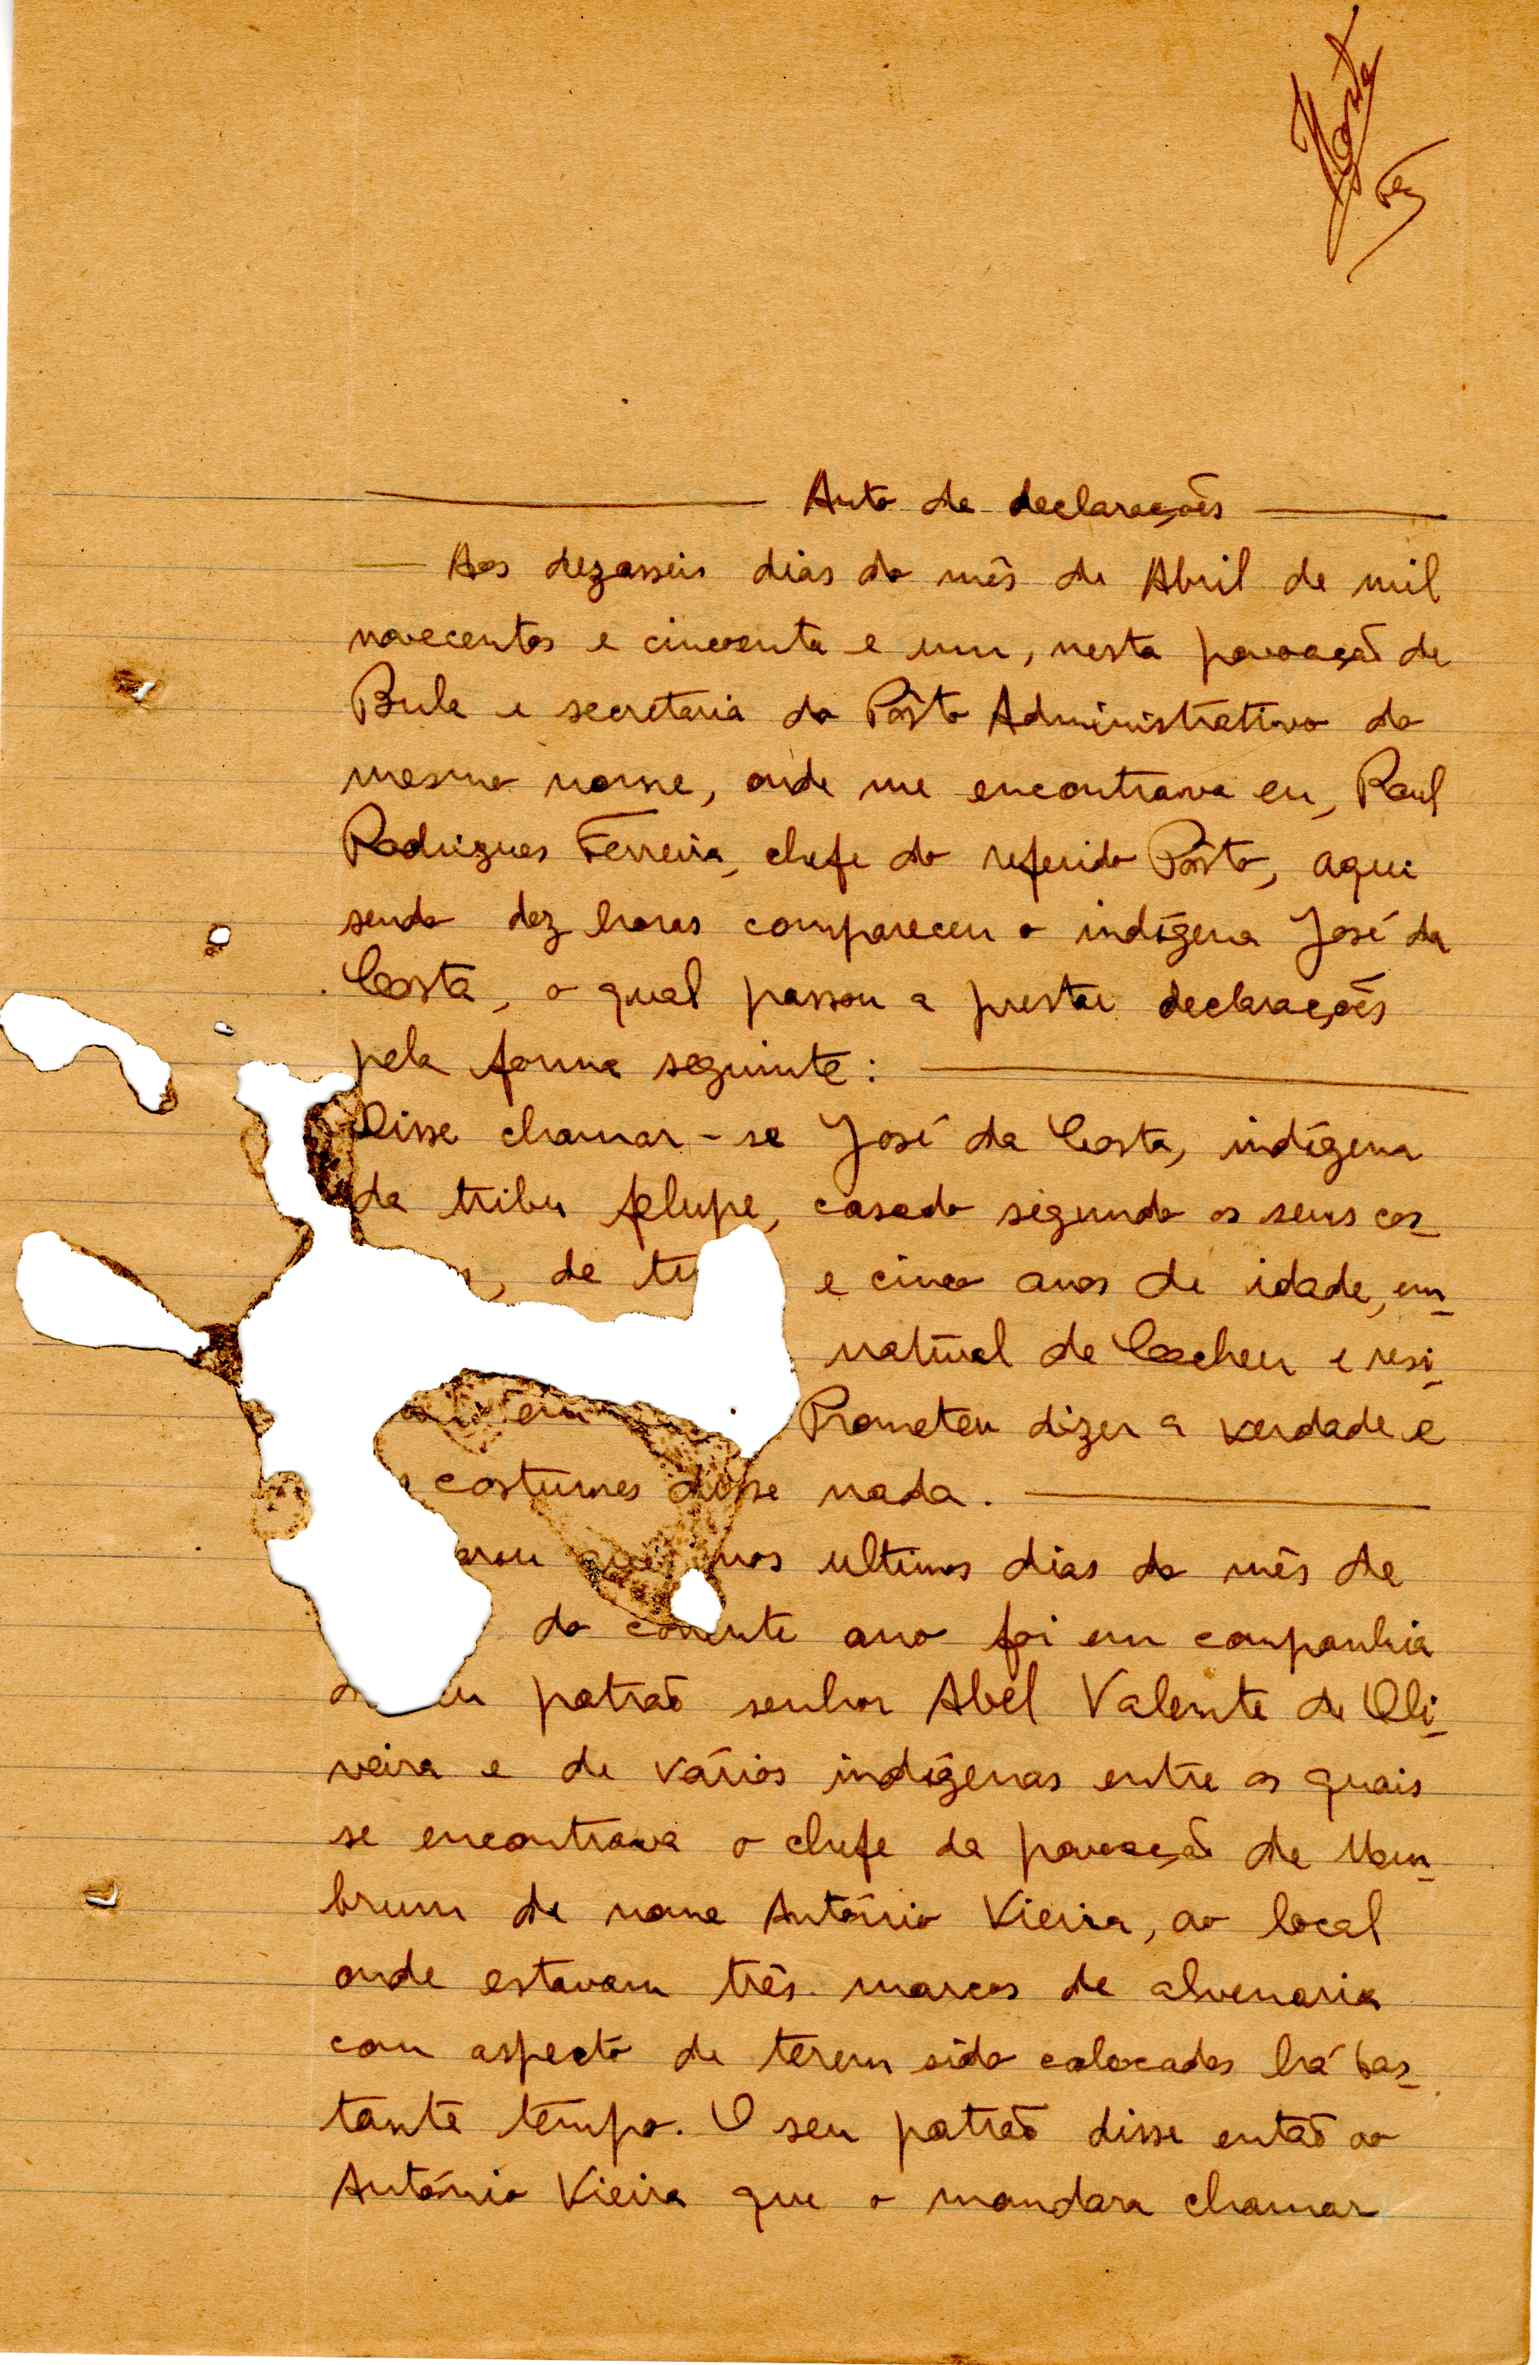 Auto de declarações
Aos dezasseis dias do mês de Abril de mil
novecentos e cincoenta e um, nesta povoação de
Bula e secretaria do Pôsto Administrativo do
mesmo nome, onde me encontrava eu, Raul
Rodrigues Ferreira, chefe do referido Pôsto, aqui
sendo dez horas compareceu o indígena José da
Costa, o qual passou a prestar declarações
pela forma seguinte:
Disse chamar-se José da Costa, indígena
da tribu felupe, casado segundo os seus cos-
de e cinco anos de idade, em-
natural de Cacheu e resi-
em Prometeu dizer a verdade e
costumes disse nada.
que nos ultimos dias do mês de
do corrente ano foi em companhia
patrão senhor Abel Valente de Oli-
veira e de vários indígenas entre os quais
se encontrava o chefe da povoação de Mam-
brum de nome António Vieira, ao local
onde estavam três marcos de alvenaria
com aspecto de terem sido colocados há bas-
tante tempo. O seu patrão disse então ao
António Vieira que o mandara chamar